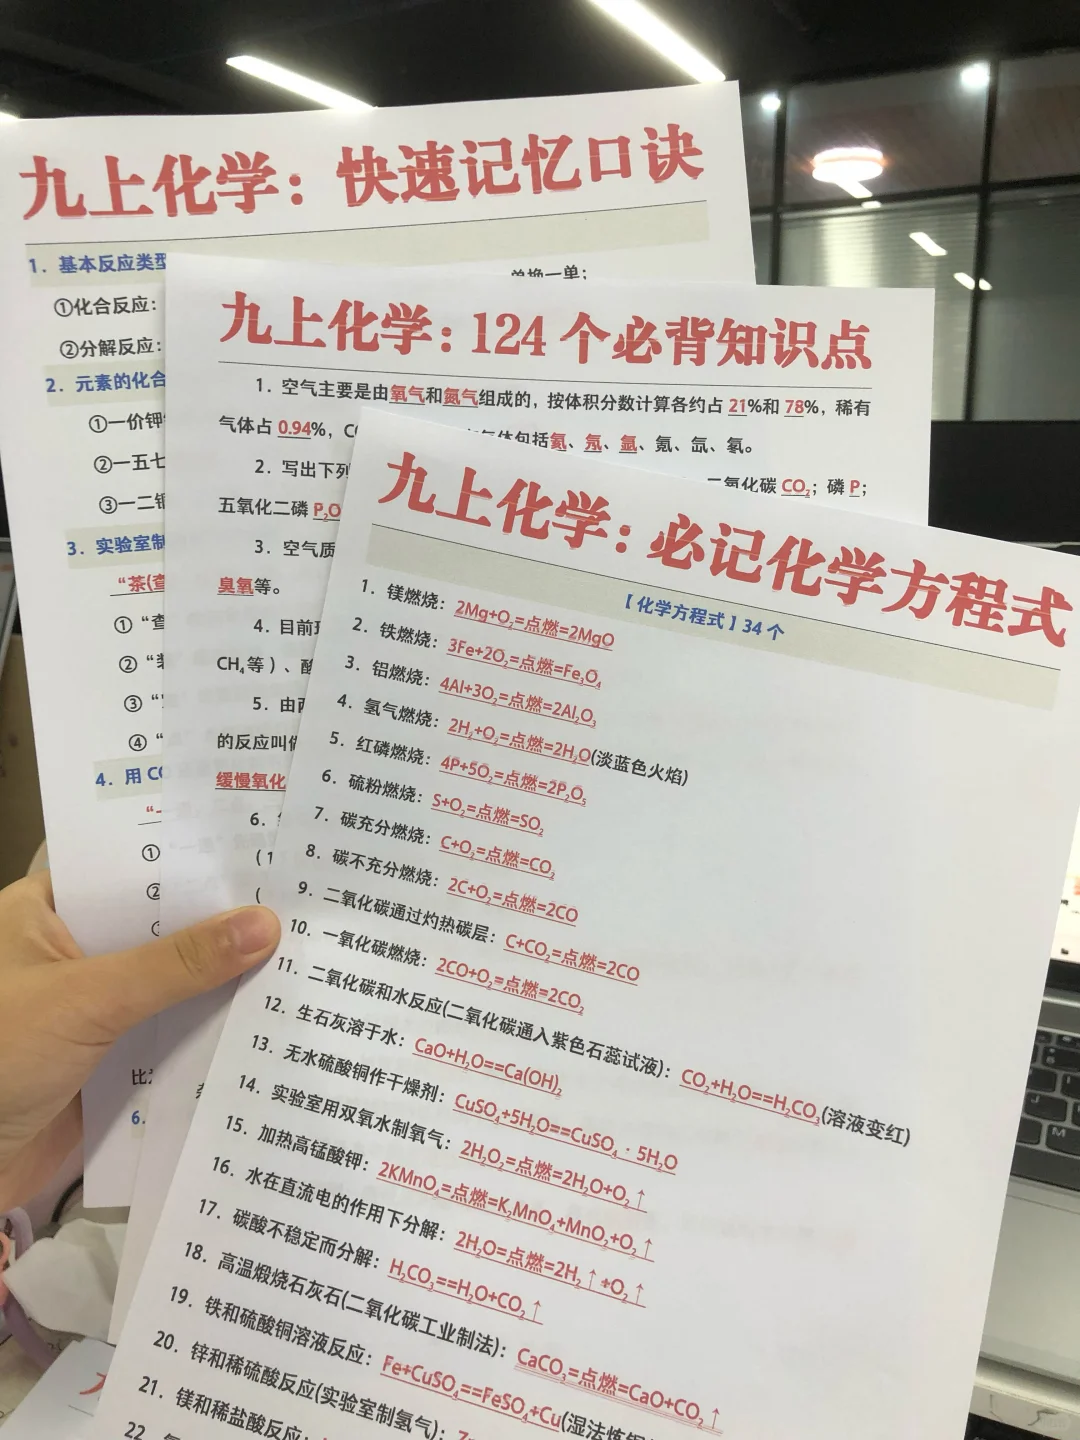 九上化学：快速记忆口诀
1．基本反应类型
单换一单；
①化合反应：
②分解反应：
2．元素的化合
①一价钾
②一五七
③一二铜
3．实验室制
“茶(查
①“查
②“装
③“
④“
4．用 CO
“一
①
②
6．
九上化学：124 个必背知识点
1．空气主要是由氧气和氮气组成的，按体积分数计算各约占 21%和 78%，稀有
气体占 0.94%，CO 气体包括氦、氖、氩、氪、氙、氡。
2．写出下列 二氧化碳 CO₂；磷 P；
五氧化二磷 P₂O
3．空气质
臭氧等。
4．目前
CH₄等）、酸
5．由两
的反应叫做
缓慢氧化
6．
(1
(
九上化学：必记化学方程式
【化学方程式】34 个
1．镁燃烧：2Mg+O₂=点燃=2MgO
2．铁燃烧：3Fe+2O₂=点燃=Fe₃O₄
3．铝燃烧：4Al+3O₂=点燃=2Al₂O₃
4．氢气燃烧：2H₂+O₂=点燃=2H₂O(淡蓝色火焰)
5．红磷燃烧：4P+5O₂=点燃=2P₂O₅
6．硫粉燃烧：S+O₂=点燃=SO₂
7．碳充分燃烧：C+O₂=点燃=CO₂
8．碳不充分燃烧：2C+O₂=点燃=2CO
9．二氧化碳通过灼热碳层：C+CO₂=点燃=2CO
10．一氧化碳燃烧：2CO+O₂=点燃=2CO₂
11．二氧化碳和水反应(二氧化碳通入紫色石蕊试液)：CO₂+H₂O==H₂CO₃(溶液变红)
12．生石灰溶于水：CaO+H₂O==Ca(OH)₂
13．无水硫酸铜作干燥剂：CuSO₄+5H₂O==CuSO₄·5H₂O
14．实验室用双氧水制氧气：2H₂O₂=点燃=2H₂O+O₂↑
15．加热高锰酸钾：2KMnO₄=点燃=K₂MnO₄+MnO₂+O₂↑
16．水在直流电的作用下分解：2H₂O=点燃=2H₂↑+O₂↑
17．碳酸不稳定而分解：H₂CO₃==H₂O+CO₂↑
18．高温煅烧石灰石(二氧化碳工业制法)：CaCO₃=点燃=CaO+CO₂↑
19．铁和硫酸铜溶液反应：Fe+CuSO₄==FeSO₄+Cu(湿法炼铜
20．锌和稀硫酸反应(实验室制氢气)：
21．镁和稀盐酸反应：
22．